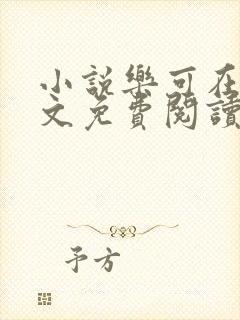 小說樂可在
文免費閱讀
予方